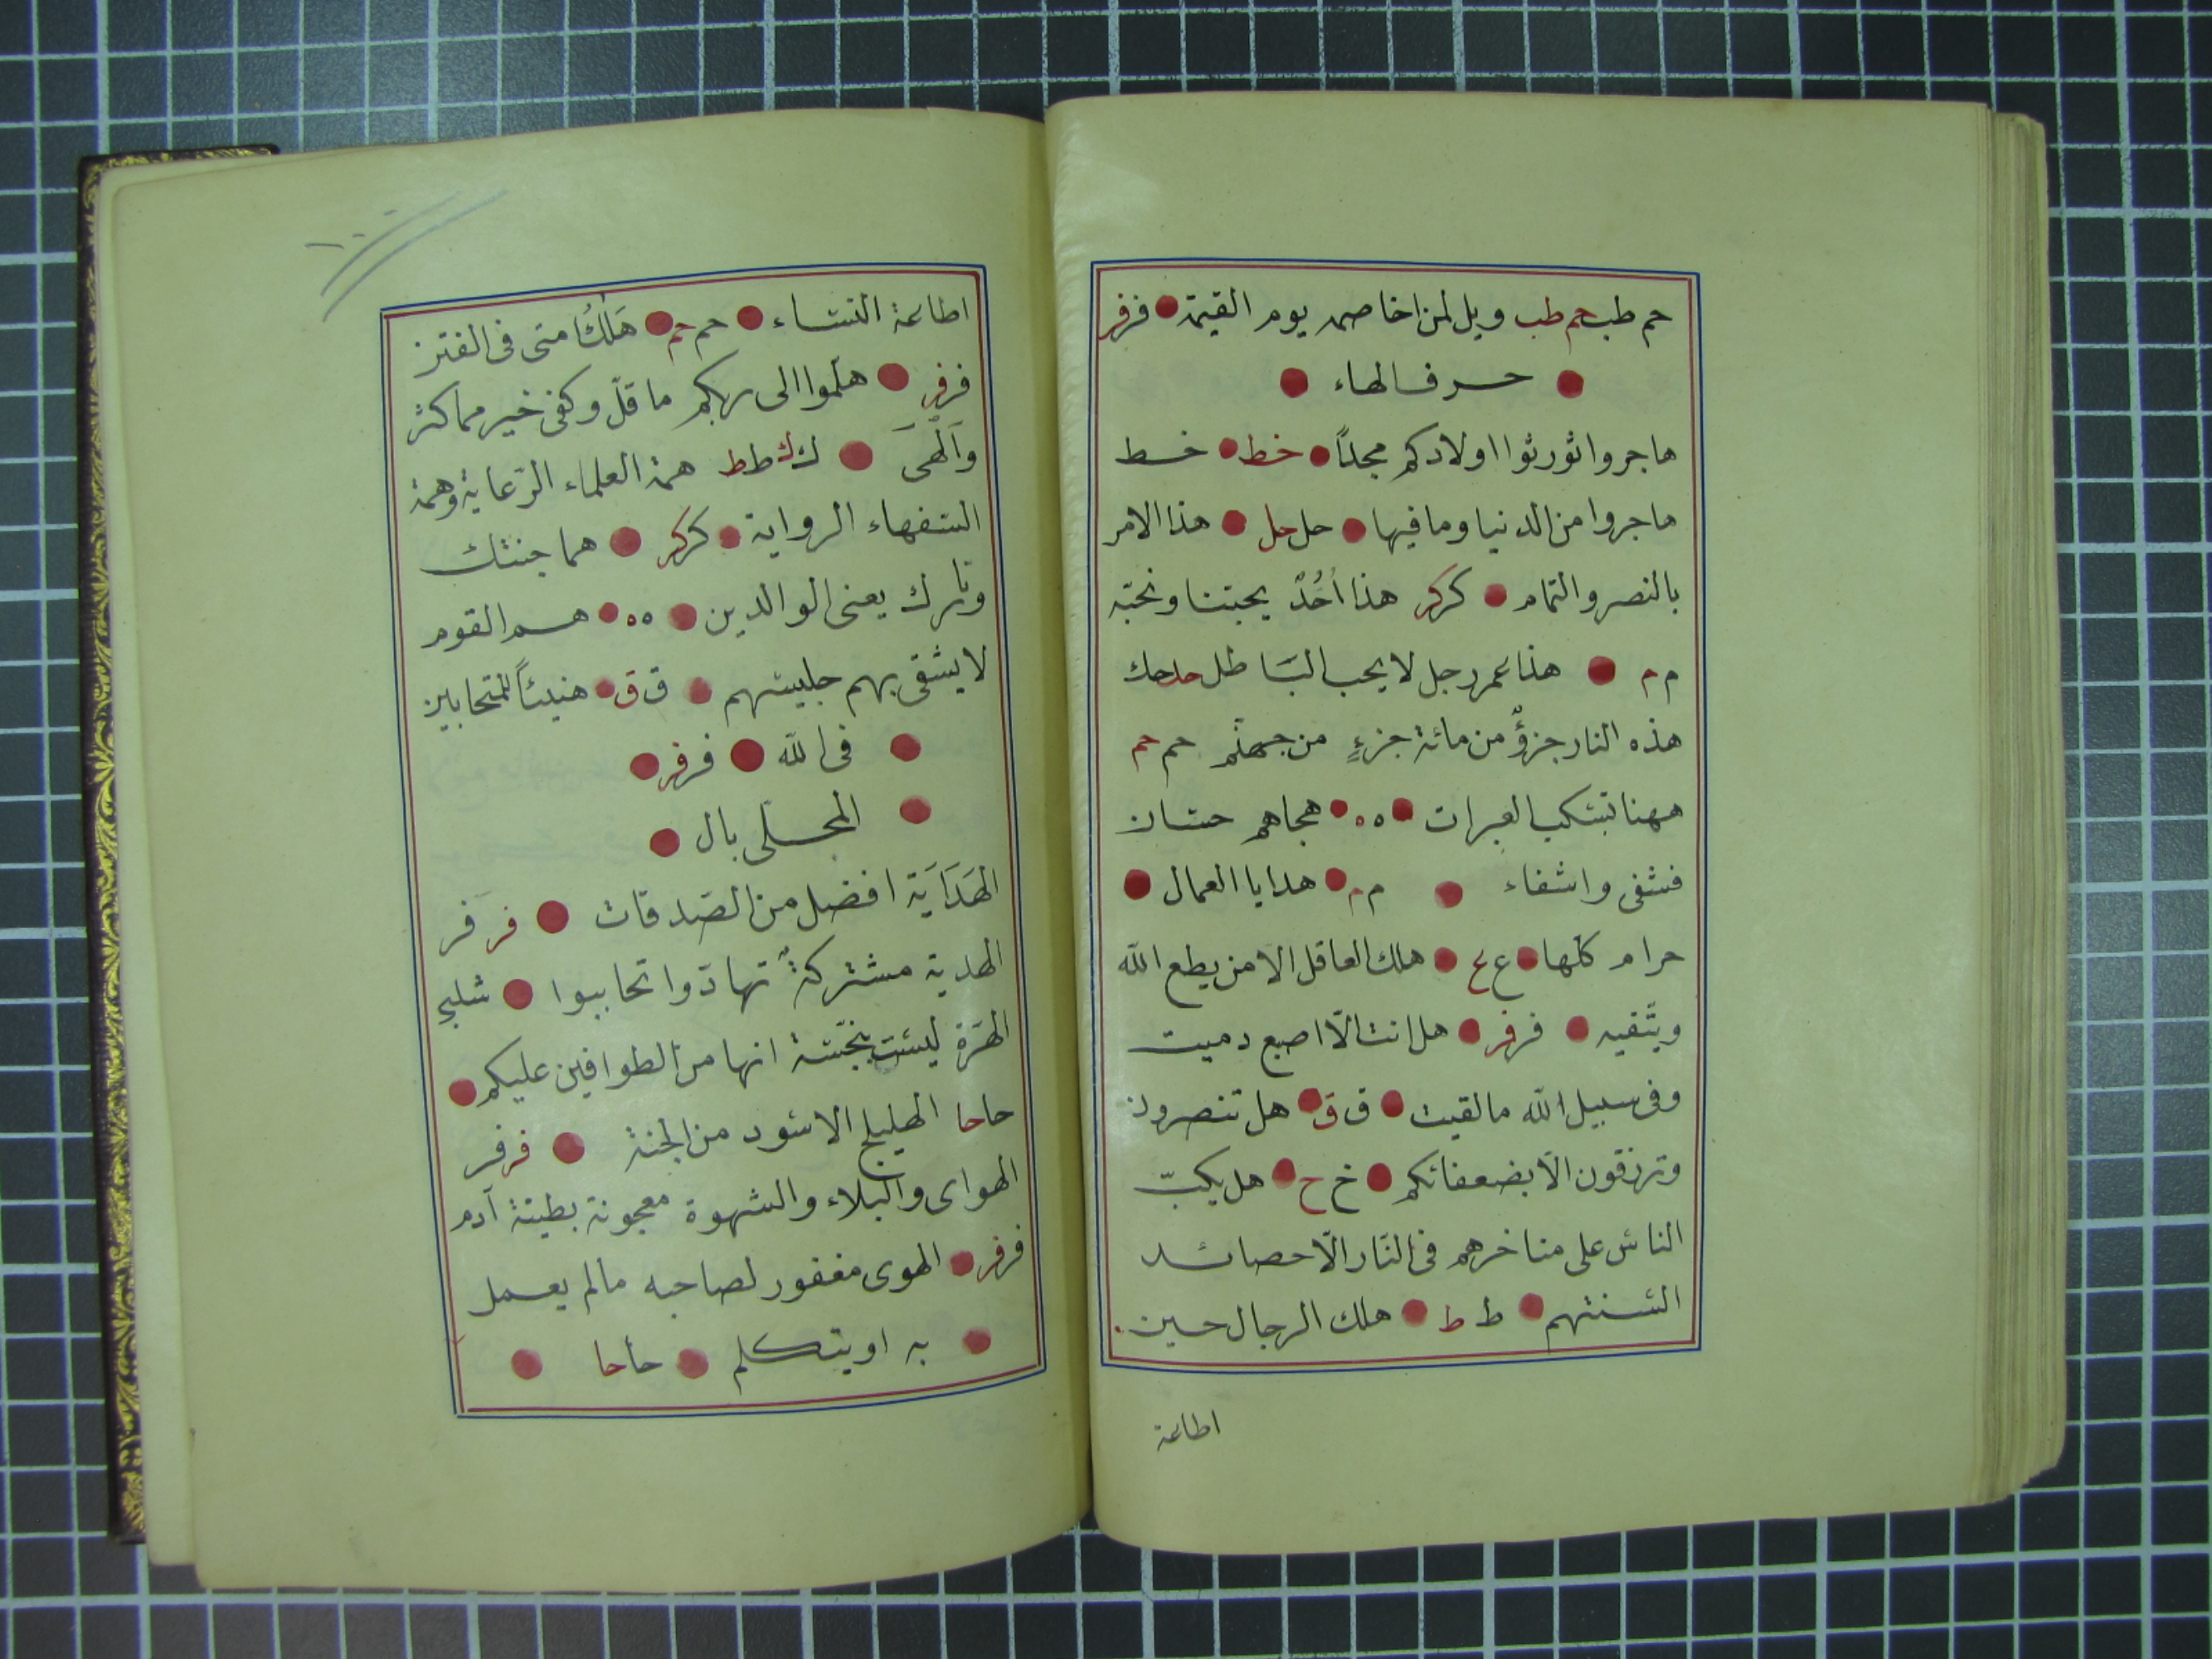 حم طب حم طب ويل لمن اخاصمه يوم القيمة فر فر
حرف الهاء
هاجروا تورثوا اولادكم مجدًا خط خط
هاجروا من الدنيا وما فيها حل حل هذا الامر
بالنصر والتمام كر كر هذا اُحُدٌ يحبنا ونحبّه
م م هذا عمر رجل لا يحب البَاطل حد حك
هذه النار جزؤٌ من مائة جزءٍ من جهنّم حم حم
ههنا تسكب العبرات ه ه هجاهم حسان
فشفى واشفاء م م هدايا العمال
حرام كلّها ع ع هلك العاقل الا من يطع الله
ويتّقيه فر فر هل انت الّا اصبع دميت
وفى سبيل الله ما لقيت ق ق هل تنصرون
وترزقون الّا بضعفائكم خ ح هل يكبّ
الناس على مناخرهم فى النّار الّا حصائد
السنتهم ط ط هلك الرجال حين
اطاعة
١٠٠
اطاعة النساء حم حم هَلَكُ امتى فى الفتن
فر فر هلّموا الى ربكم ما قلّ وكفى خير مما كثر
وَاَلْهىَ ك ك ط ط همة العلماء الرّعاية وهمة
السفهاء الرواية كر كر هما جنتك
ونارك يعنى الوالدين ه ه هم القوم
لا يشقى بهم جليسهم ق ق هنيئًا للمتحابين
فى الله فر فر
المحلى بال
الهَدَايَة افضل من الصّدقات فر فر
الهدية مشتركةٌ تهادّوا تحاببوا شلبى
الهرّة ليست بنجسّة انها من الطوافين عليكم
حا حا الهليلج الاسود من الجنة فر فر
الهواى والبلاء والشهوة معجونة بطينة آدم
فر فر الهوى مغفور لصاحبه مالم يعمل
به او يتكلم حا حا